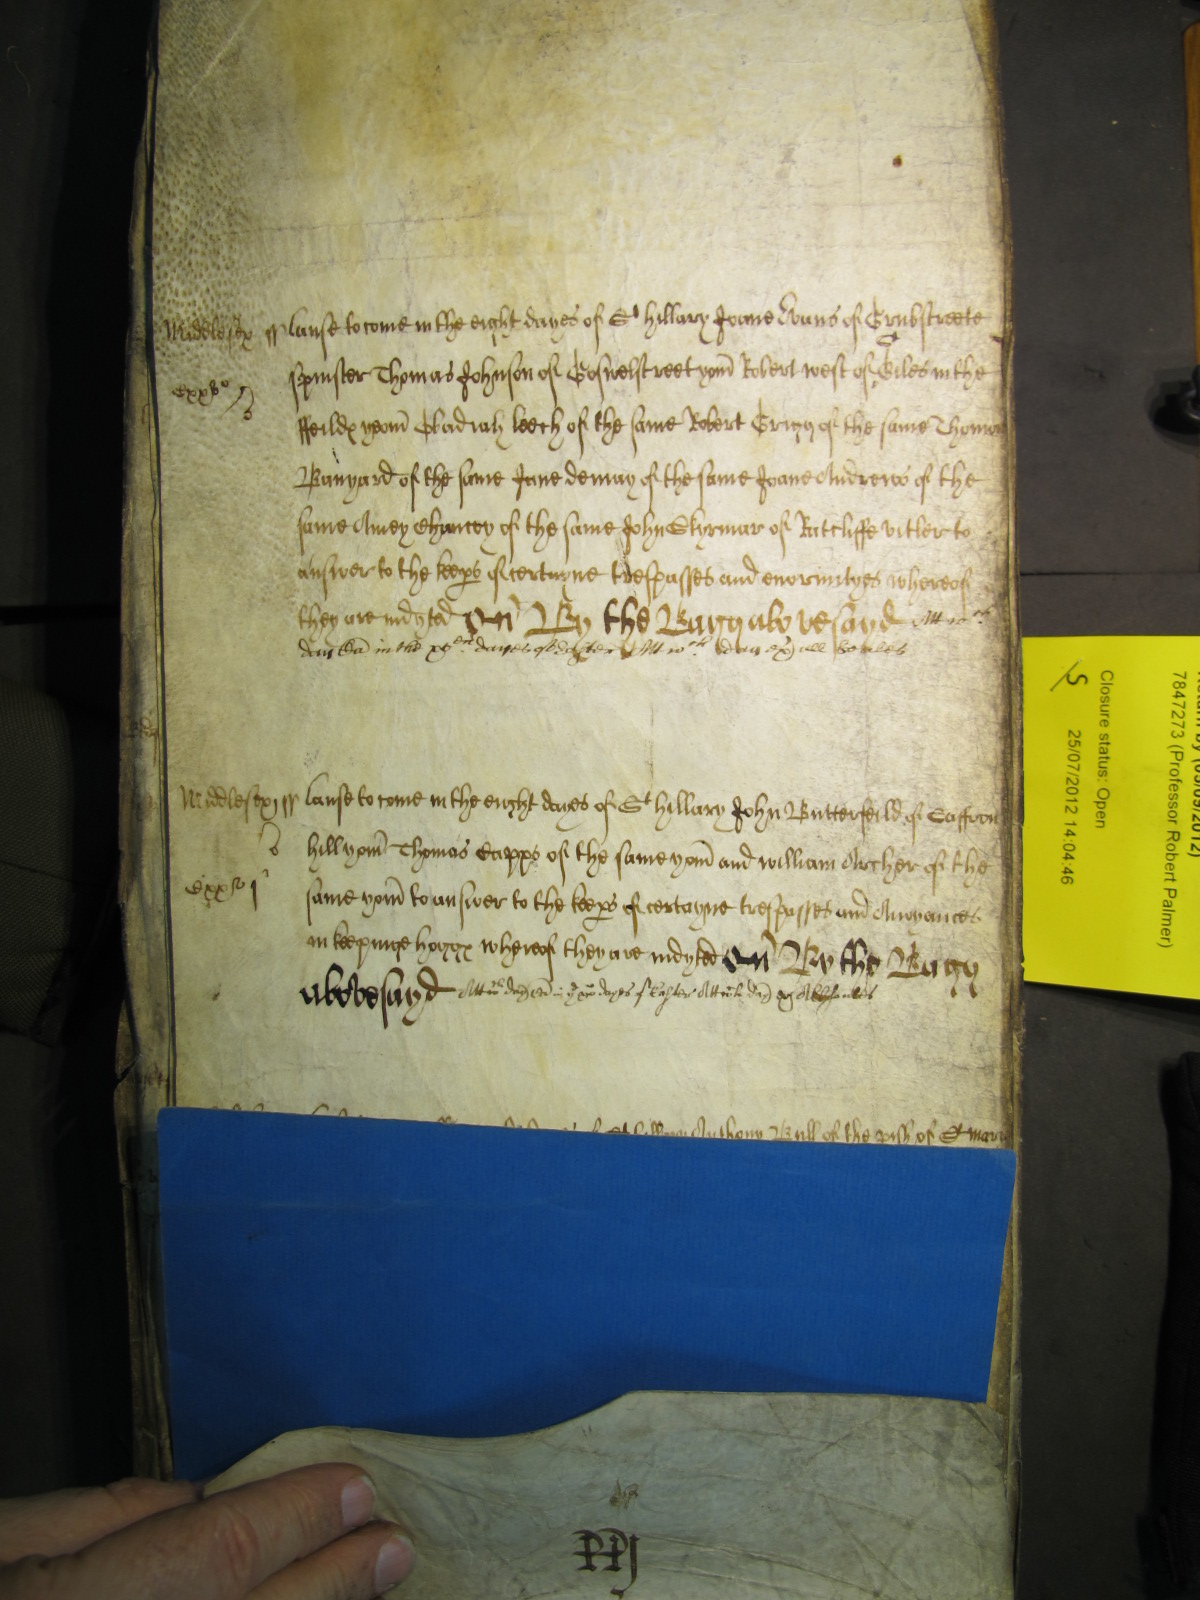 Middlesex ss Cause to come in the eight dayes of St Hillary Joane Evans of Grubstreete
spinster Thomas Johnson of Goswelstreet yom Robert West of Giles in the
ffeildx yeom Obadiah Leech of the same Robert Grigg of the same Thomas
Banyard of the same Jane Demay of the same Joane Andrewes of the
same Amey Chancey of the same John Skyrmar of Ratcliffe vitler to
answer to the keeps of certayne trespasses and enormityes whereof
they are indyted By the Bagg abovesayd Att
day in the dayes of Easter Att day
Middlesex ss Cause to come in the eight dayes of St Hillary John Butterfeild of Saffron
hill yom Thomas Capps of the same yom and William Archer of the
same yom to answer to the keeps of certayne trespasses and Anoyances
in keepinge hoggx whereof they are indyted By the Bagg
abovesayd Att day dayes of Easter Att
Anthony Bull of the pish of St Mary
Closure status: Open
25/07/2012 14:04:46
7847273 (Professor Robert Palmer)